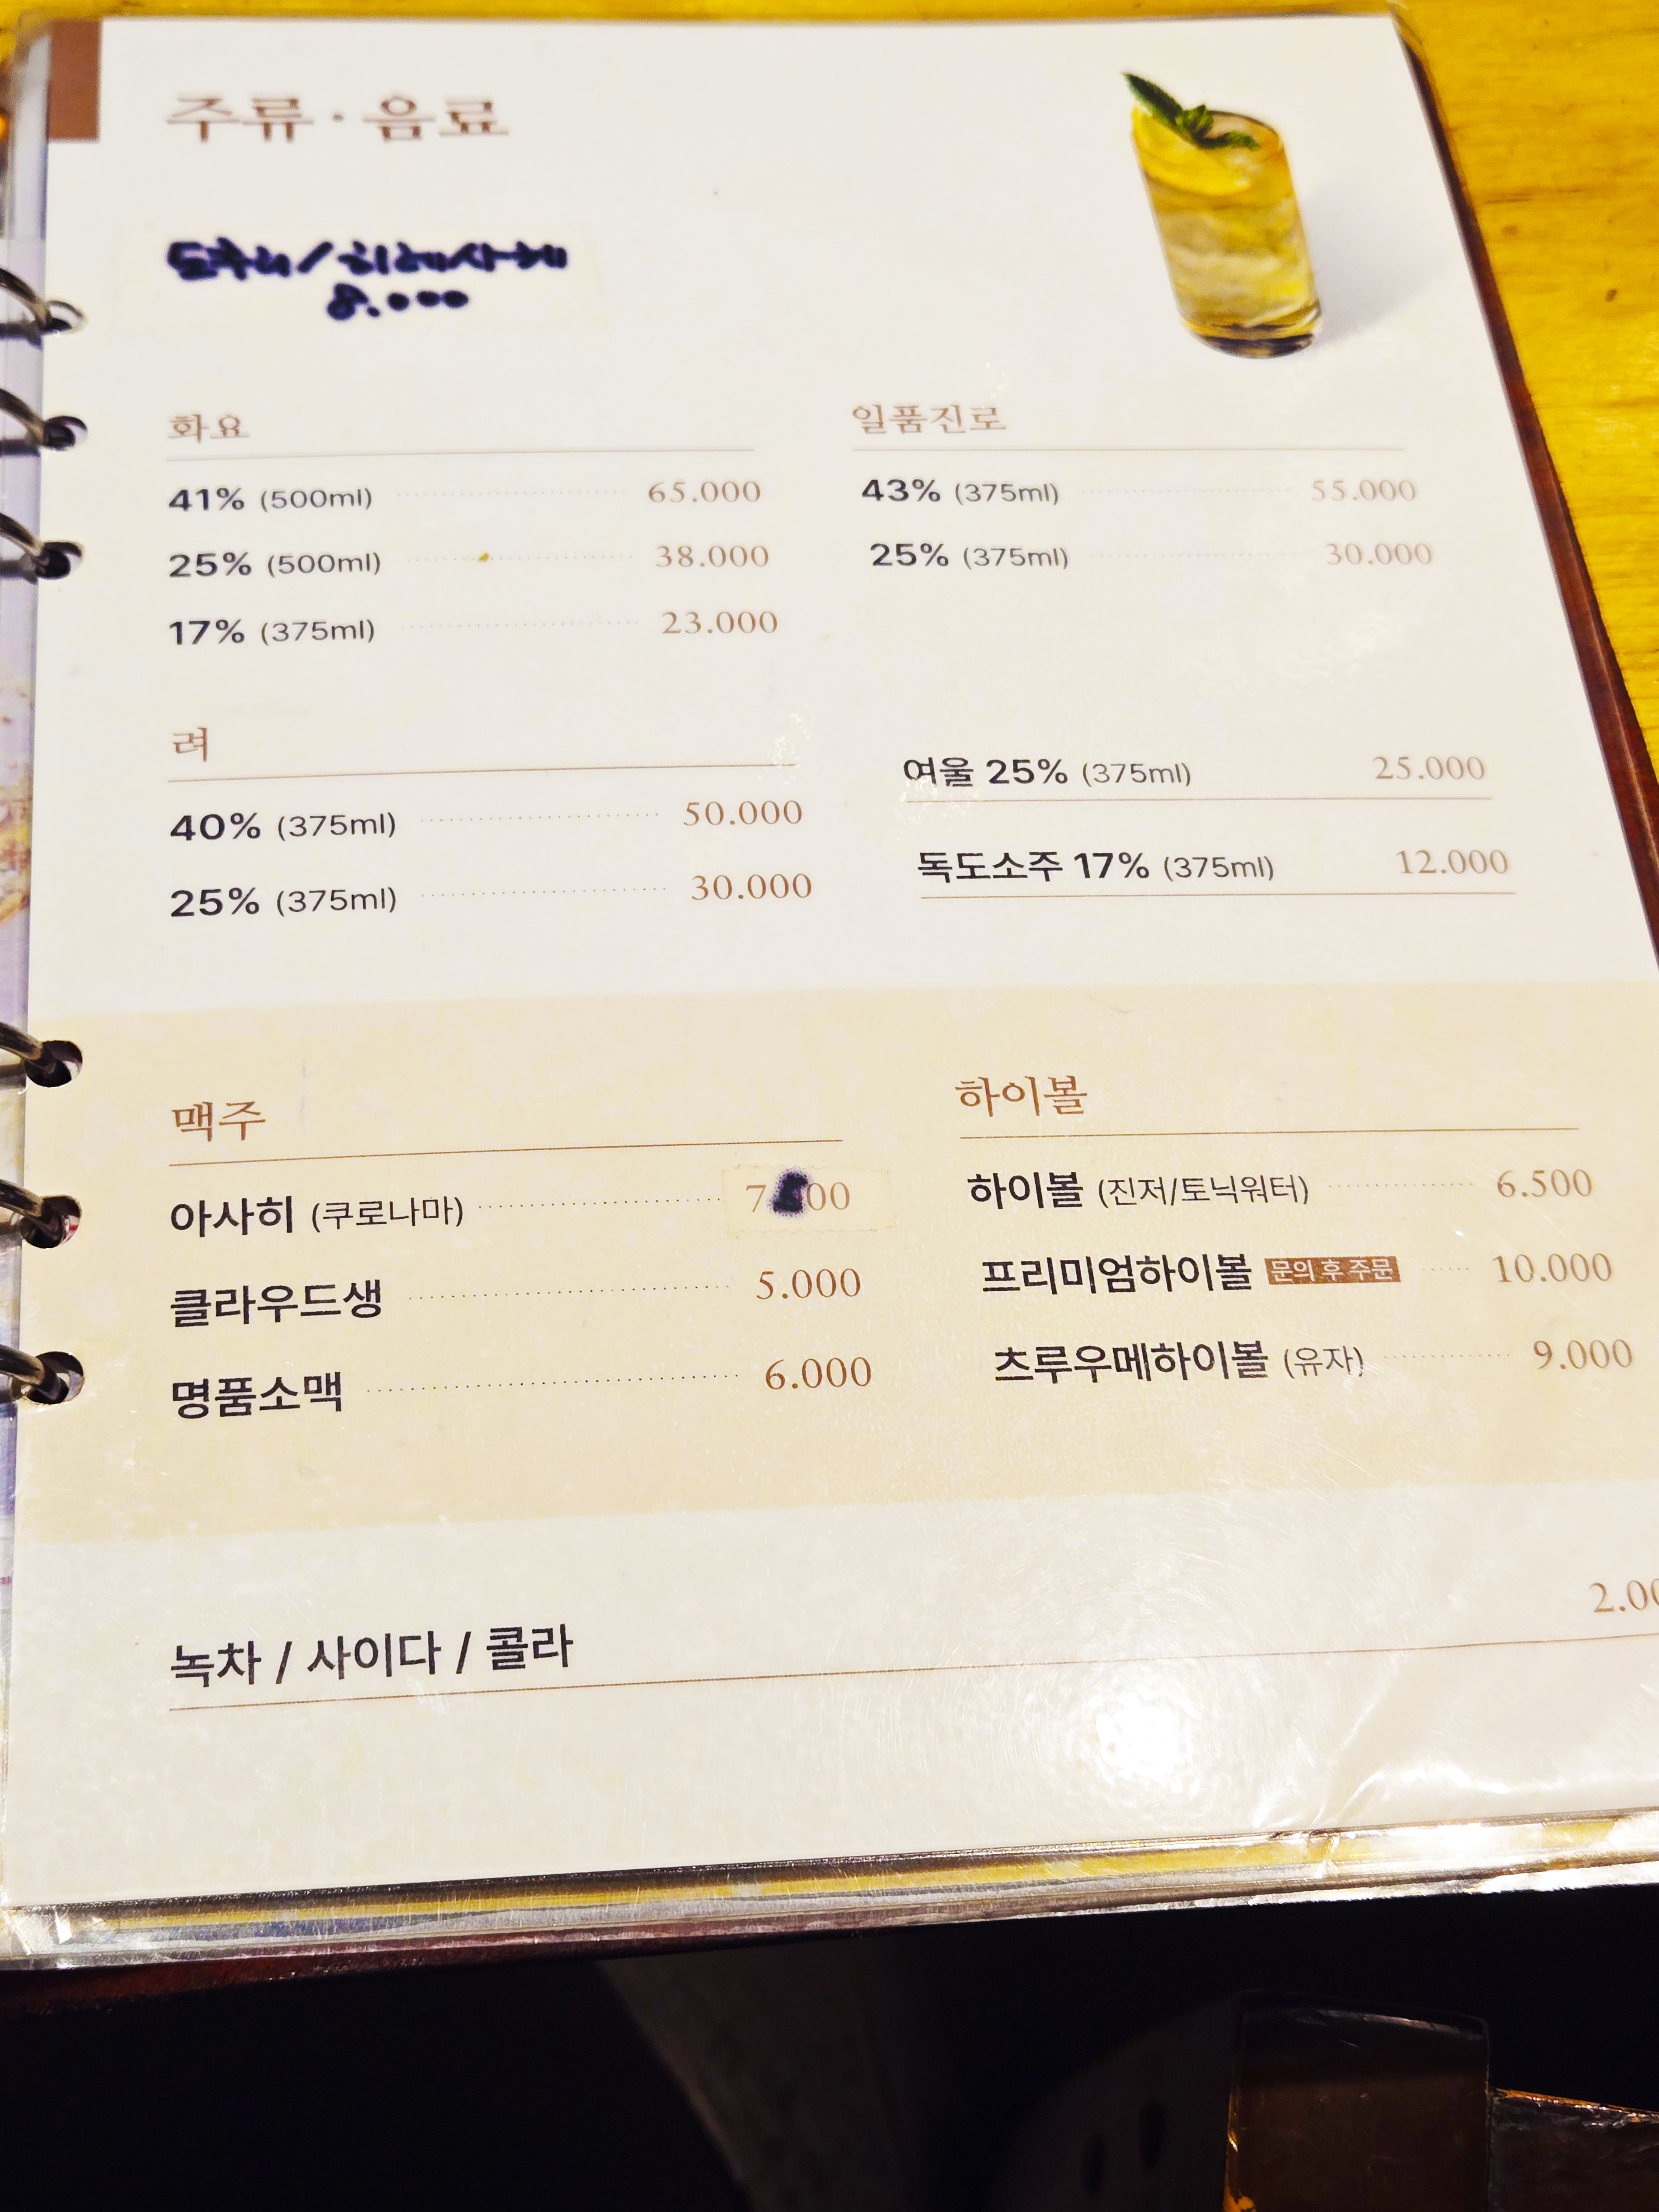 주류 · 음료
도쿠리/히레사케
8.000
화요
41% (500ml) 65.000
25% (500ml) 38.000
17% (375ml) 23.000
일품진로
43% (375ml) 55.000
25% (375ml) 30.000
려
40% (375ml) 50.000
25% (375ml) 30.000
여울 25% (375ml) 25.000
독도소주 17% (375ml) 12.000
맥주
아사히 (쿠로나마)
클라우드생 5.000
명품소맥 6.000
하이볼
하이볼 (진저/토닉워터) 6.500
프리미엄하이볼 문의 후 주문 10.000
츠루우메하이볼 (유자) 9.000
녹차 / 사이다 / 콜라